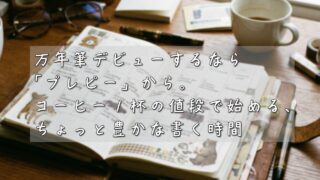 万年筆デビューするなら
「プレピー」から。
コーヒー1杯の値段で始める、
ちょっと豊かな書く時間